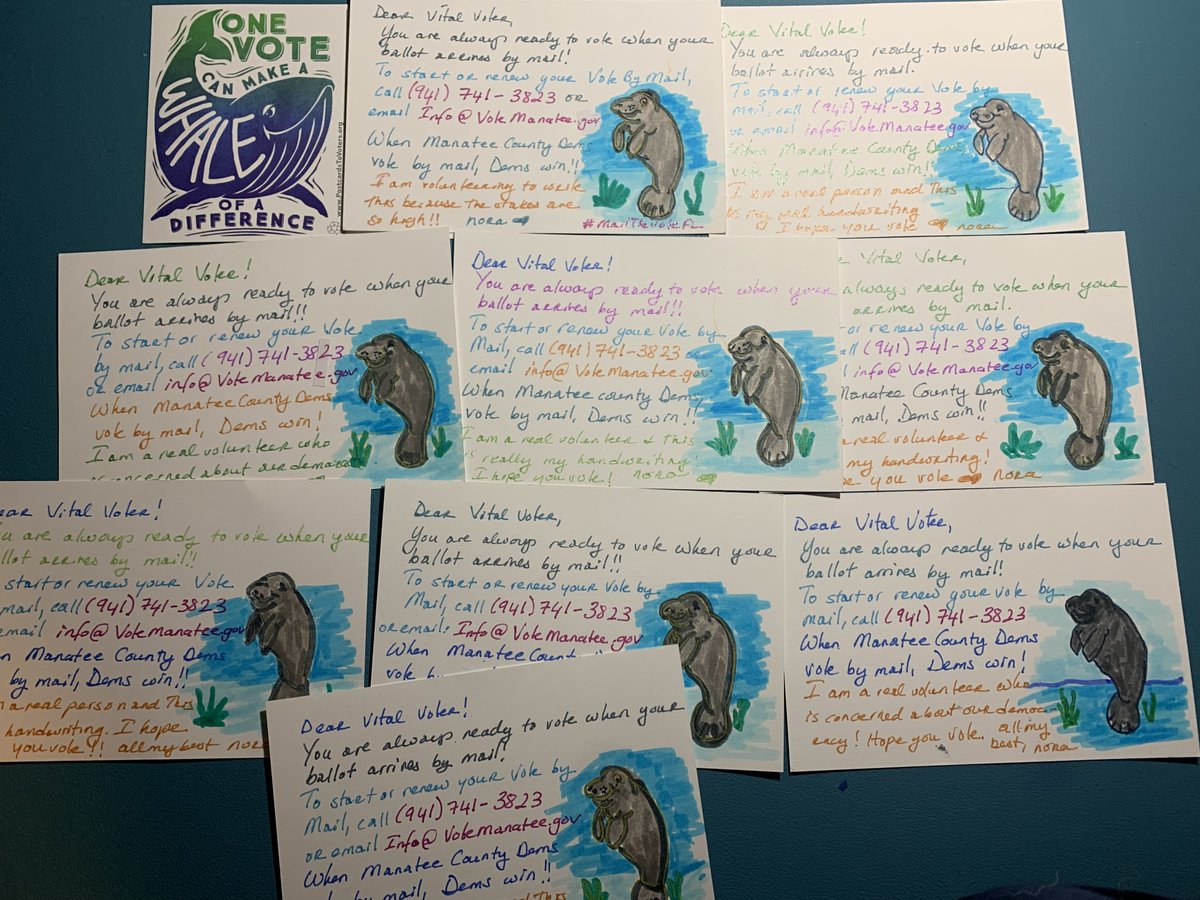 ONE
VOTE
CAN MAKE A
WHALE
OF A
DIFFERENCE
www.PostcardsToVoters.org
Dear Vital Voter,
You are always ready to vote when your
ballot arrives by mail!
To start or renew your Vote By Mail,
call (941) 741-3823 or
email Info@VoteManatee.gov
When Manatee County Dems
vote by mail, Dems win!!
I am volunteering to write
this because the stakes are
so high!! nora
#MailTheVoteFL
Dear Vital Voter!
You are always ready to vote when your
ballot airives by mail.
To start or renew your Vote by
mail, call (941) 741-3823
or email info@VoteManatee.gov
When Manatee County Dems,
vote by mail, Dems win!!
I am a real person and this
is my real handwriting
I hope you vote nora
Dear Vital Voter!
You are always ready to vote when your
ballot arrives by mail!!
To start or renew your Vote
by mail, call (941) 741-3823
or email info@VoteManatee.gov
When Manatee County Dems
vote by mail, Dems win!
I am a real volunteer who
is concerned about our democ
Dear Vital Voter!
You are always ready to vote when your
ballot arrives by mail!!
To start or renew your Vote by
Mail, call (941) 741-3823 or
email info@VoteManatee.gov
When Manatee County Dems
vote by mail, Dems win!!
I am a real volunteer & this
is really my handwriting!
I hope you vote! nora
Vital Voter,
always ready to vote when your
arrives by mail.
or renew your Vote by
call (941) 741-3823
info@VoteManatee.gov
Manatee County Dems
mail, Dems win!!
a real volunteer &
my handwriting!
you vote nora
Dear Vital Voter!
You are always ready to vote when your
ballot arrives by mail!!
start or renew your Vote
Mail, call (941) 741-3823
email info@VoteManatee.gov
Manatee County Dems
by mail, Dems win!!
a real person and this
handwriting. I hope
you vote!! all my best nora
Dear Vital Voter,
You are always ready to vote when your
ballot arrives by mail!!
To start or renew your Vote by
Mail, call (941) 741-3823
or email: Info@VoteManatee.gov
When Manatee Count
vote
Dear Vital Voter,
You are always ready to vote when your
ballot arrives by mail!
To start or renew your Vote by
mail, call (941) 741-3823
When Manatee County Dems
vote by mail, Dems win!
I am a real volunteer who
is concerned about our democ
racy! Hope you vote, all my
best, nora
Dear Vital Voter!
You are always ready to vote when your
ballot arrives by mail!
To start or renew your Vote by
Mail, call (941) 741-3823
or email Info@VoteManatee.gov
When Manatee County Dems
by mail, Dems win!!